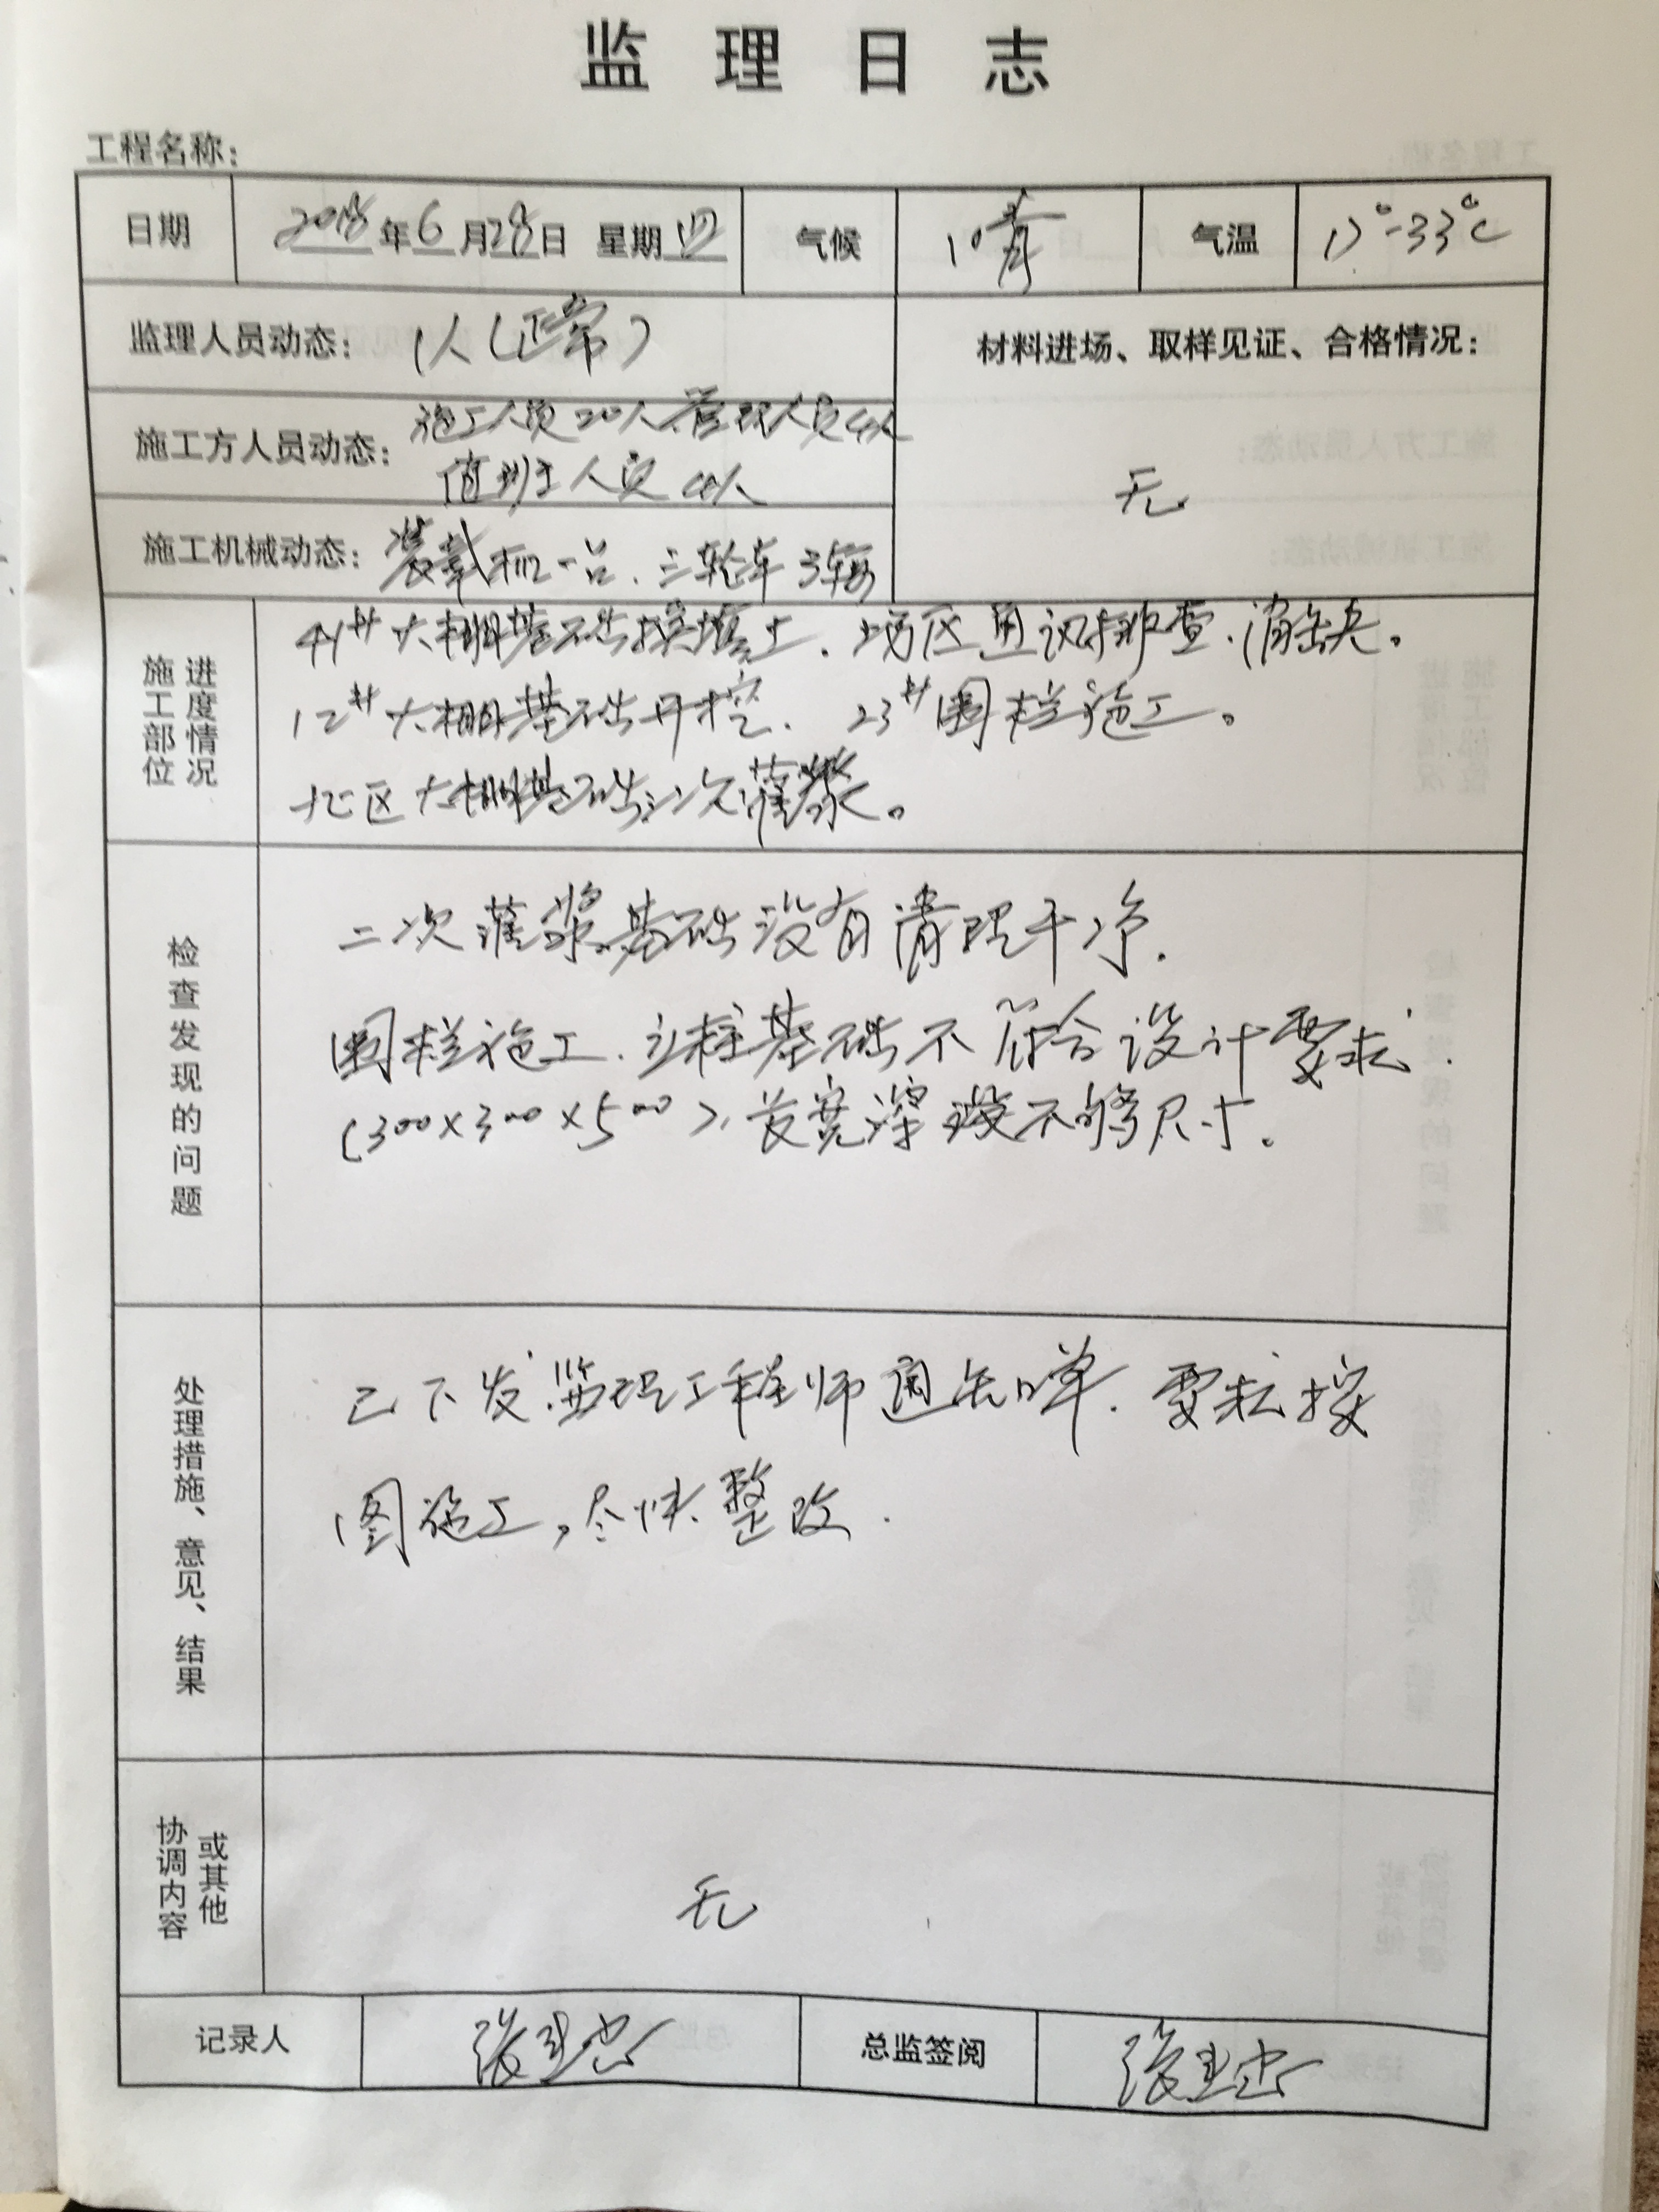 监理日志
工程名称：
日期 2018年6月28日 星期四 气候 晴 气温 17°-33°C
监理人员动态： 1人（正常） 材料进场、取样见证、合格情况：
施工方人员动态： 施工人员20人 管理人员4人
值班人员4人
无
施工机械动态： 装载机一台、三轮车3辆
施工部位 进度情况
41#大棚基础填土、场区 排查、消缺。
12#大棚基础开挖、23#围栏施工。
北区大棚基础二次灌浆。
检查发现的问题
二次灌浆基础没有清理干净.
围栏施工、立柱基础不符合设计要求.
（300×300×500）、长宽深 不够尺寸。
处理措施、意见、结果
已下发监理工程师通知单、要求按
图施工，尽快整改.
协调内容 或其他
无
记录人 总监签阅